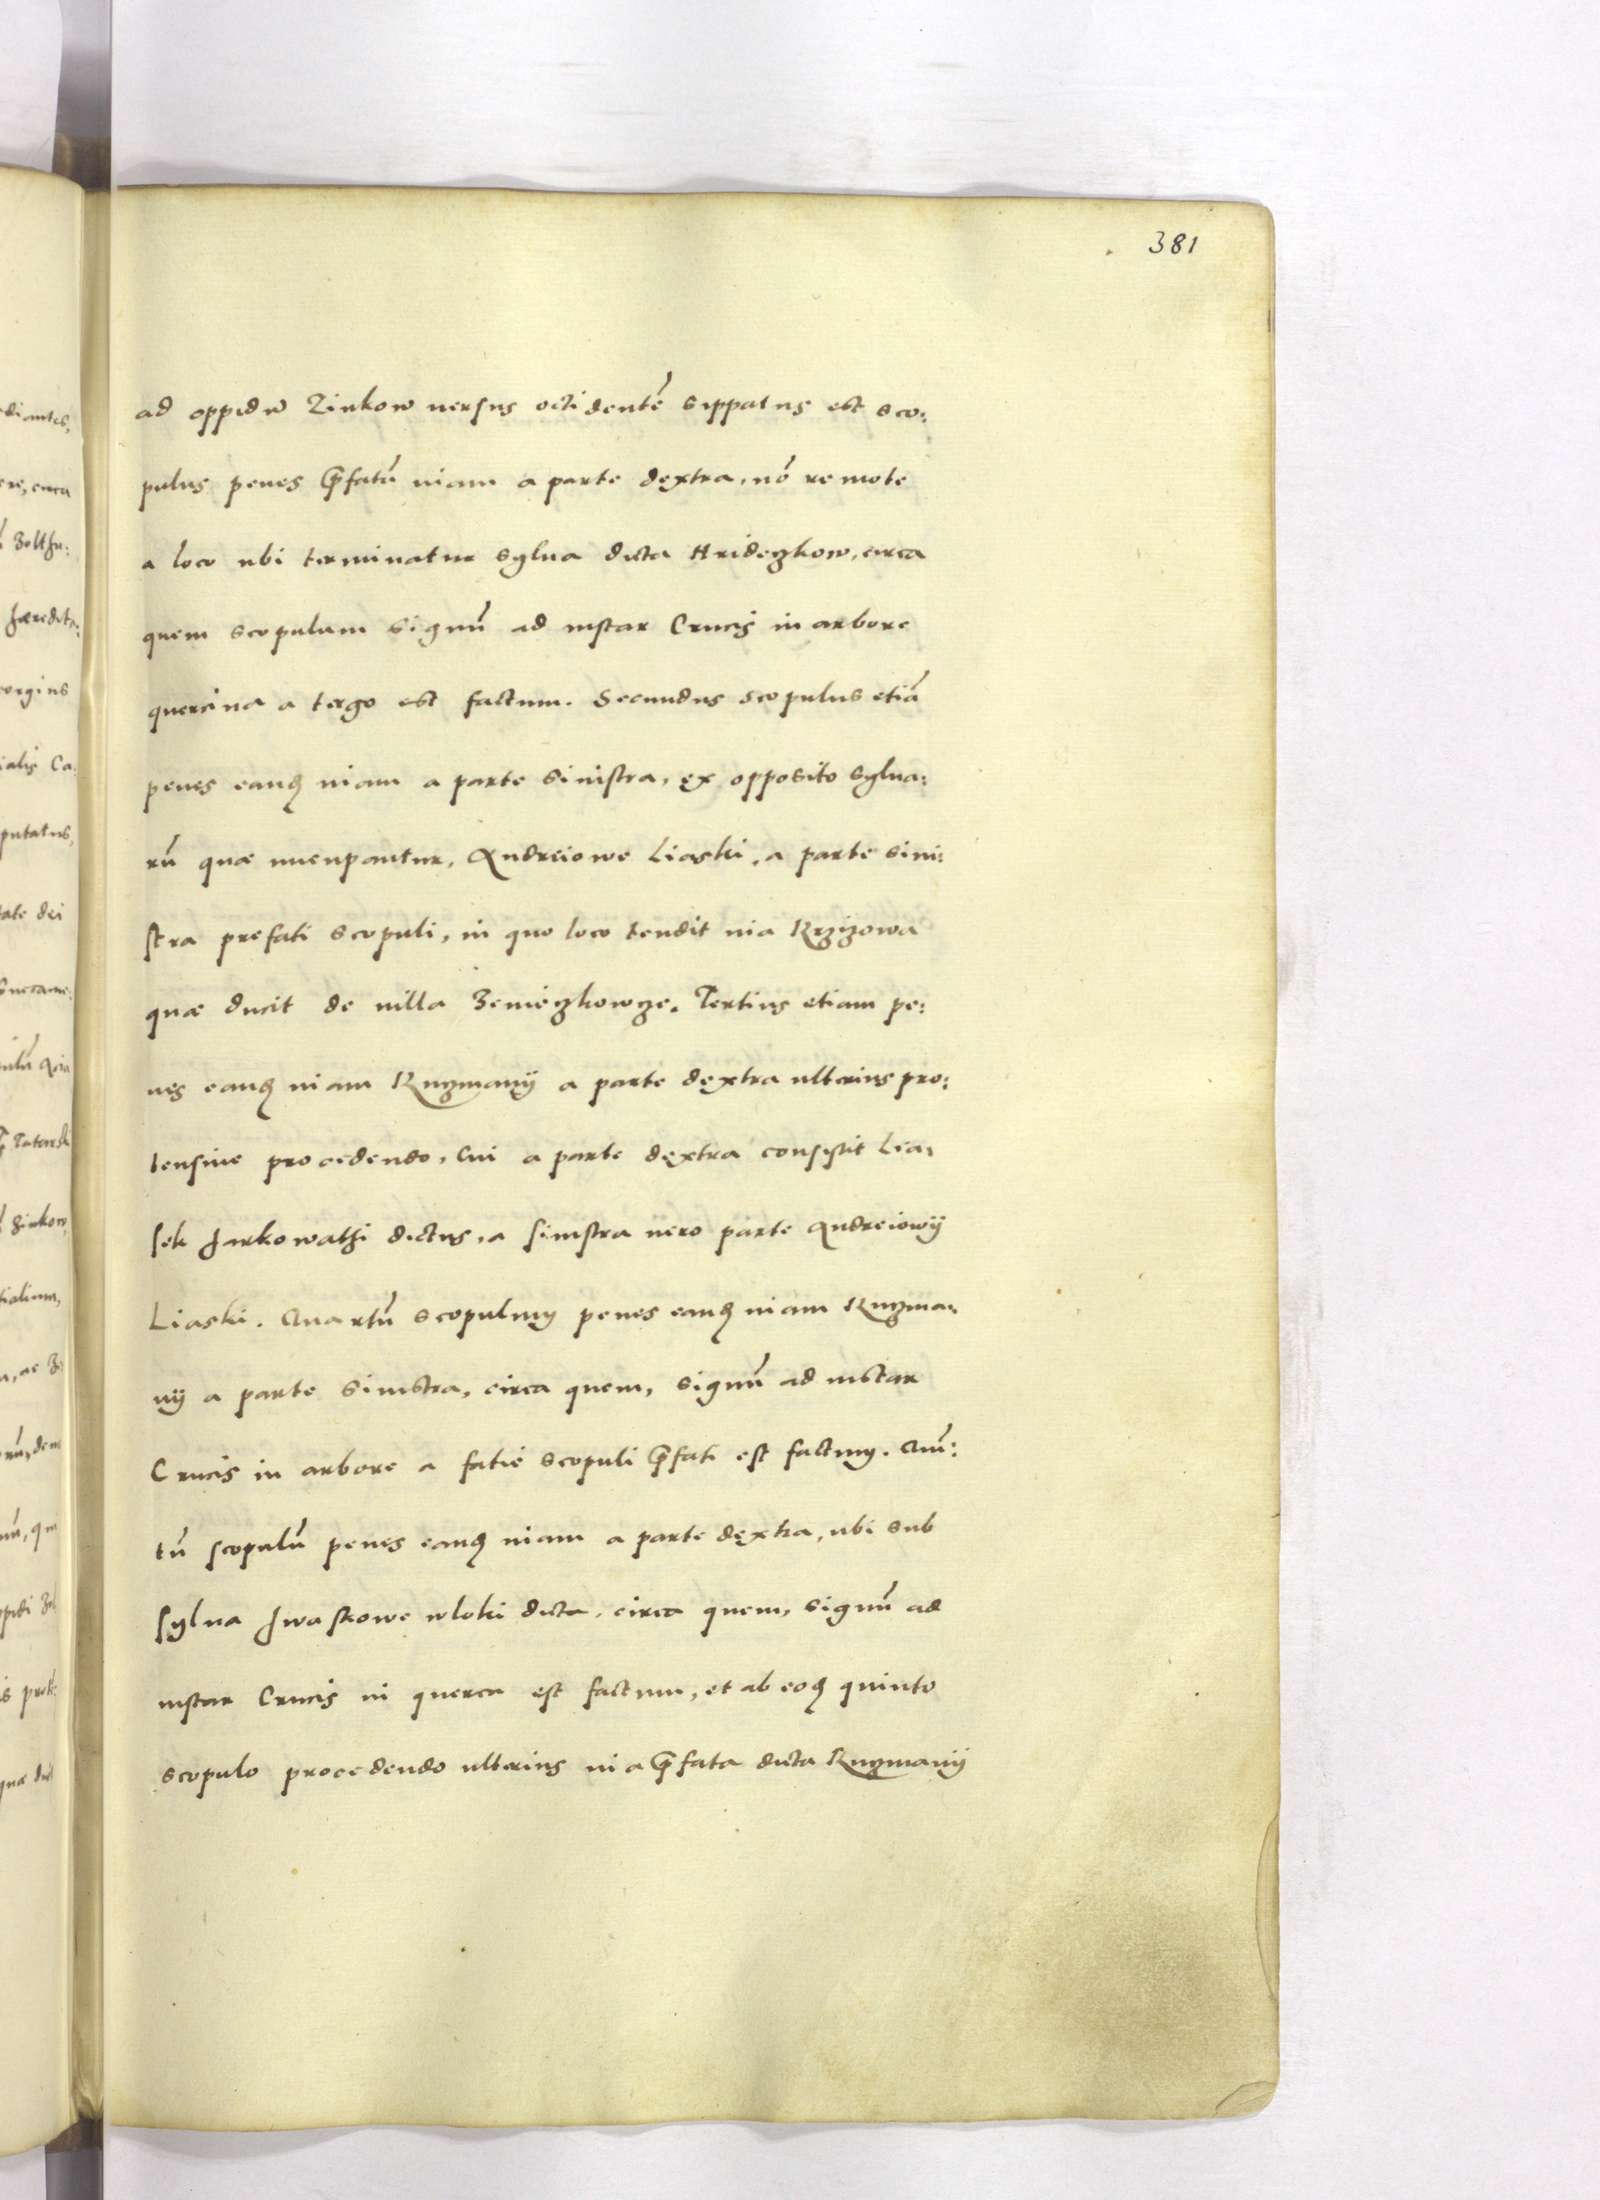 381
ad oppidū Zinkow uersus octidentē sippatus est sco:
pulus penes p̄fatā uiam a parte dextra, nō remote
a loco ubi terminatur sylua dicta Hridezkow, circa
quem scopulum signū ad instar Crucis in arbore
quercina a tergo est factum. Secundus scopulus etiā
penes eandẽ uiam a parte sinistra, ex opposito sylua:
rū quæ nuncupantur, Andreiowe Liaski, a parte sini:
stra prefati scopuli, in quo loco tendit uia Krzizowa
quæ ducit de uilla Zeniezkowze. Tertius etiam pe:
nes eandẽ uiam Kuzmanÿ a parte dextra ulterius pro:
tensiue procedendo, cui a parte dextra consistit Lia,
sek Jarkowathi dictus, a sinistra uero parte Andreiowÿ
Liaski. Quartū scopulum penes eandẽ uiam Kuzma,
nÿ a parte sinistra, circa quem, signū ad instar
Crucis in arbore a fatie scopuli p̄fati est factum. Quī:
tū scopulū penes eandẽ uiam a parte dextra, ubi sub
sylua Jwaskowe wloki dicta, circa quem, signū ad
instar Crucis in querca est factum, et ab eodẽ quinto
scopulo procedendo ulterius uia p̄fata dicta Kuzmanÿ